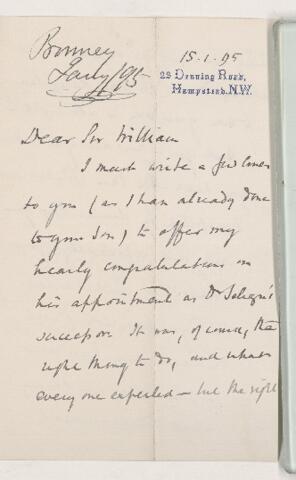 Bonney
Jany /95
15-1-95
23 Denning Road,
Hampstead. N.W.
Dear Sir William
I must write a few lines
to you (as I have already done
to your son) to offer my
hearty congratulations on
his appointment as Dr
successor. It was, of course, the
right thing to do, and what
every one expected – but the right